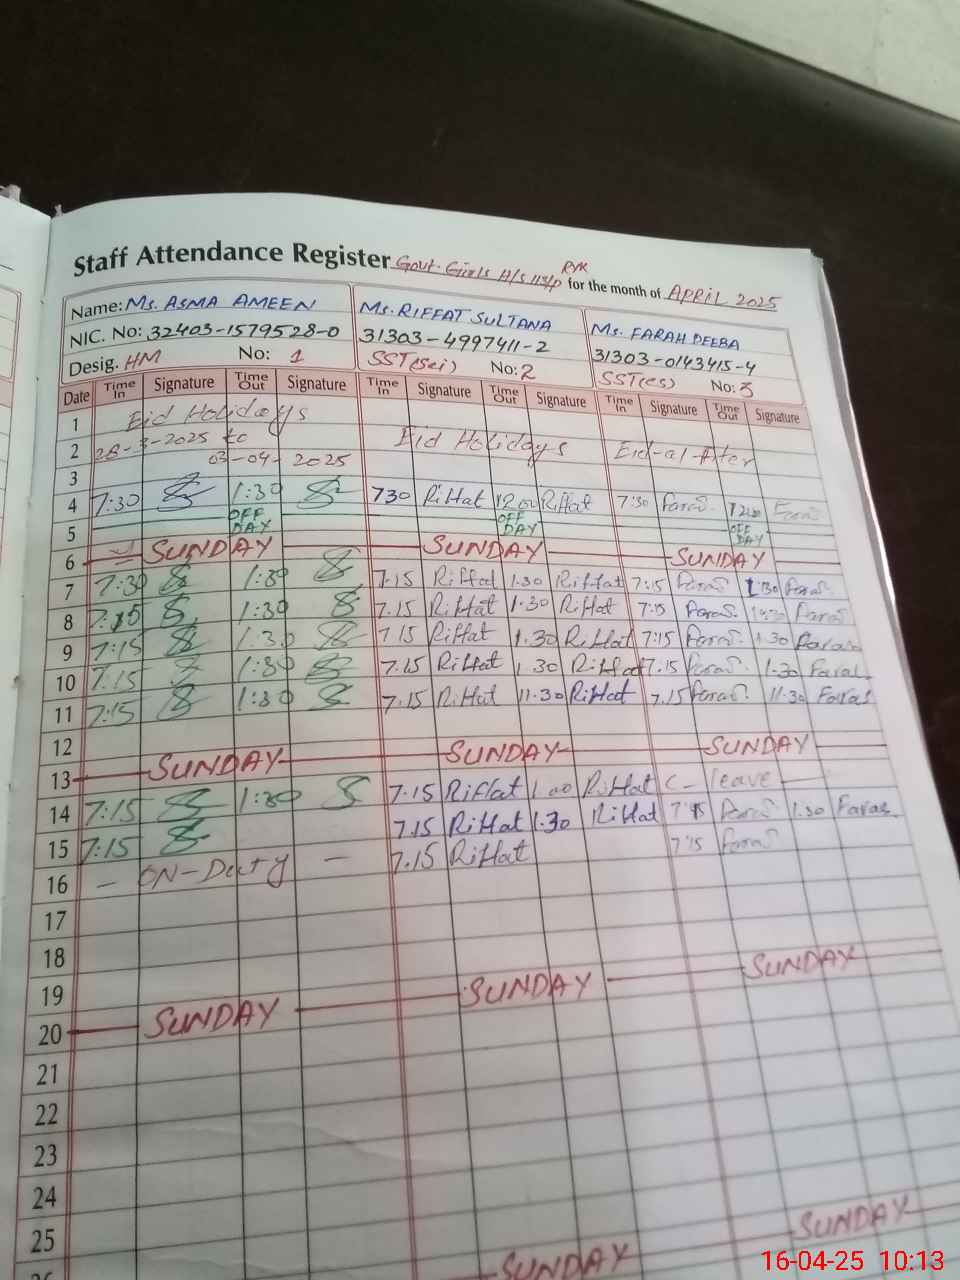 Staff Attendance Register Govt. Girls H/S 113/P RYK for the month of APRIL 2025
Name: Ms. ASMA AMEEN Ms. RIFFAT SULTANA Ms. FARAH DEEBA
NIC. No: 32403-1579528-0 31303-4997411-2 31303-0143415-4
Desig. HM No: 1 SST(Sci) No: 2 SST(CS) No: 3
Date Time In Signature Time Out Signature Time In Signature Time Out Signature Time In Signature Time Out Signature
1 Eid Holidays
2 28-3-2025 to Eid Holidays Eid-al-
3 03-04-2025
4 7:30 1:30 730 Riffat 1200 Riffat 7:30 Faras
5 OFF DAY OFF DAY OFF DAY
6 SUNDAY SUNDAY SUNDAY
7 7:30 1:30 7:15 Riffat 1:30 Riffat 7:15 Faras 1:30 Faras
8 7:15 1:30 7.15 Riffat 1.30 Riffat 7:15 Faras Faras
9 7:15 1:30 7 15 Riffat 1.30 Riffat 7:15 Faras 1.30 Faras
10 7:15 1:30 7.15 Riffat 1.30 Riffat 7.15 Faras 1.30 Faras
11 7:15 1:30 7.15 Riffat 11.30 Riffat 7.15 Faras 11.30 Faras
12
13 SUNDAY SUNDAY SUNDAY
14 7:15 1:30 7:15 Riffat 1.00 Riffat C- leave
15 7:15 7.15 Riffat 1:30 Riffat Faras 1.30 Faras
16 - ON-Duty - 7.15 Riffat 7:15 Faras
17
18
19
20 SUNDAY SUNDAY SUNDAY
21
22
23
24
25
26 SUNDAY SUNDAY
16-04-25 10:13